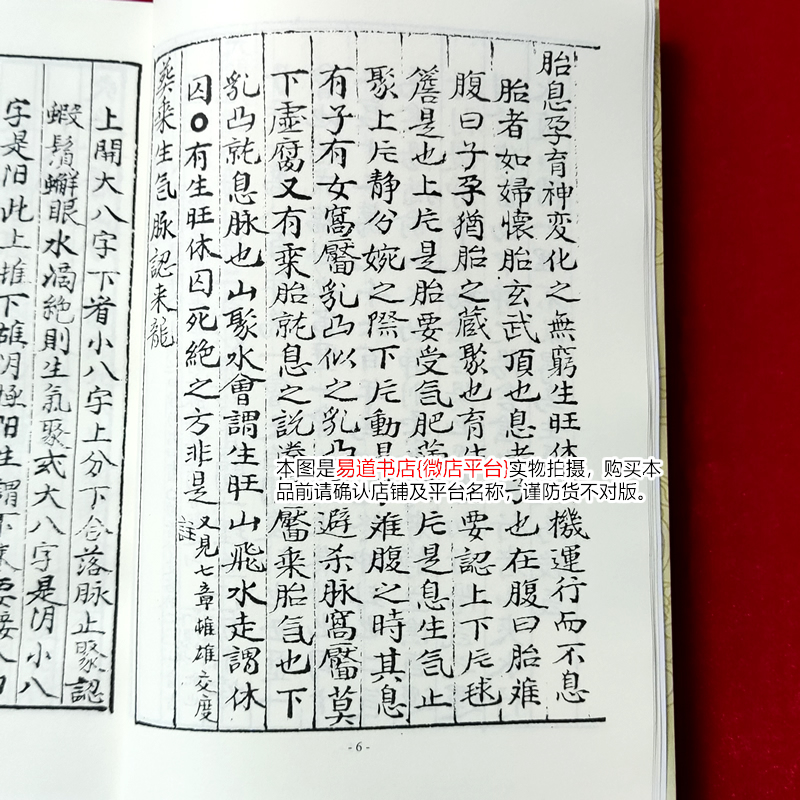 胎息孕育神变化之無窮生旺休機運行而不息
胎者如婦懷胎玄武頂也息者也在腹曰胎难
腹曰子孕猶胎之蔵聚也育生要認上下片毬
簷是也上片是胎要受气肥片是息生气止
聚上片静分娩之際下片動难腹之時其息
有子有女窩靨乳凸似之乳凸避杀脉窩靨莫
下虚腐又有乘胎就息之説靨乘胎气也下
乳凸就息脉也山聚水會謂生旺山飛水走謂休
囚〇有生旺休囚死絶之方非是又見七章雌雄交度
註
葬乘生气脉認来龍
上開大八字下看小八字上分下合落脉止聚認
蝦鬚蠏眼水滴絶則生氣聚或大八字是阴小八
字是阳此上堆下雄
本图是易道书店(微店平台)实物拍摄，购买本
品前请确认店铺及平台名称，谨防货不对版。
- 6 -